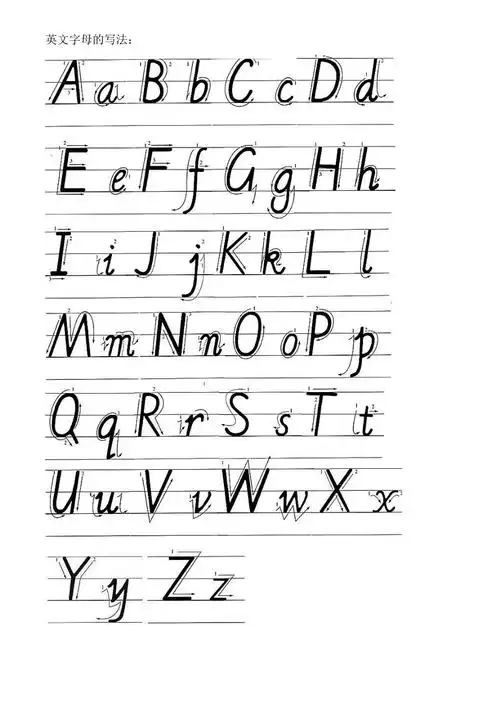 英文字母的写法：
A a B b C c D d
E e F f G g H h
I i J j K k L l
M m N n O o P p
Q q R r S s T t
U u V v W w X x
Y y Z z